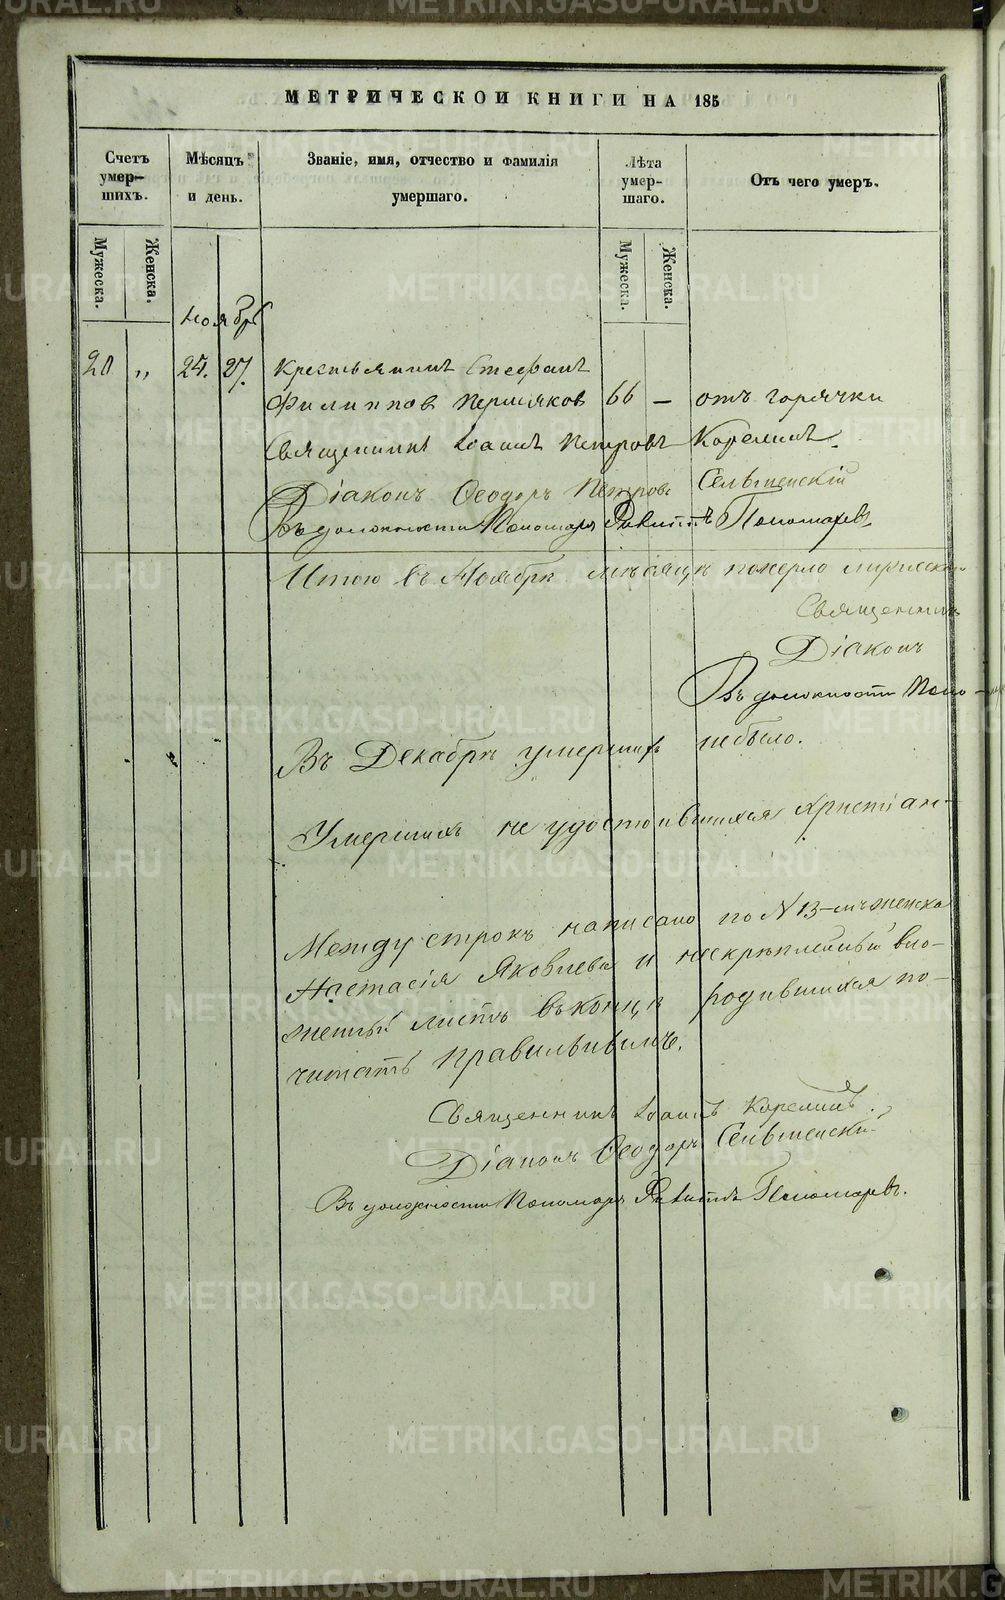 МЕТРИЧЕСКОЙ КНИГИ НА 185
Счетъ умер-шихъ.
Мѣсяцъ и день.
Званіе, имя, отчество и фамилія умершаго.
Лѣта умер-шаго.
Отъ чего умеръ.
Мужеска.
Женска.
Мужеска.
Женска.
Ноябрь
20 „ 24. 27. Крестьянинъ Стефанъ
Филипповъ Пермяковъ 66 — отъ горячки
Священникъ Іоаннъ Петровъ Корелинъ.
Діаконъ Ѳеодоръ Петровъ Сельменскій
Въ должности Пономаря Пономаревъ
Итого въ Ноябрѣ мѣсяцѣ померло мужеска
Священникъ
Діаконъ
Въ должности Поно-
Въ Декабрѣ умершихъ небыло.
Умершихъ не удостоившихся христіан-
Между строкъ написано по N 13-мъ женска
Настасія Яковлева и нескрѣпленный вло-
женный листъ въ концѣ родившихся по-
читать правильнымъ.
Священникъ Іоаннъ Корелинъ.
Діаконъ Ѳеодоръ Сельменскій
Въ должности Пономаря Пономаревъ.
METRIKI.GASO-URAL.RU